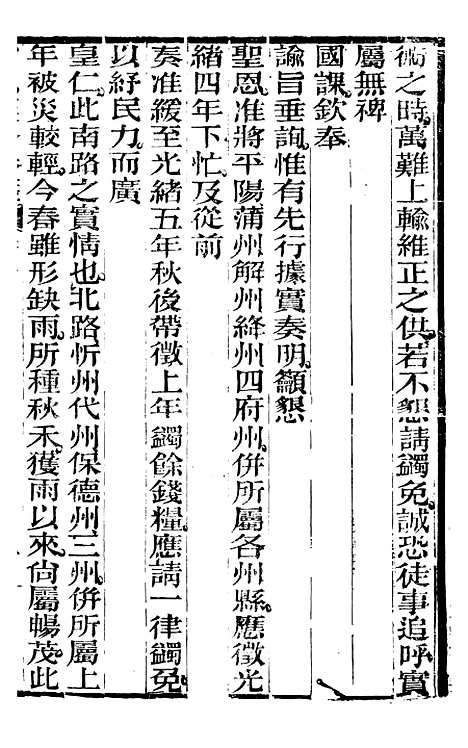 之時萬難上輸維正之供若不懇請蠲免誠恐徒事追呼實
屬無裨
國課欽奉
諭旨垂詢惟有先行據實奏明籲懇
聖恩准將平陽蒲州解州絳州四府州併所屬各州縣應徵光
緒四年下忙及從前
奏准緩至光緒五年秋後帶徵上年蠲餘錢糧應請一律蠲免
以紓民力而廣
皇仁此南路之實情也北路忻州代州保德州三州併所屬上
年被災較輕今春雖形缺雨所種秋禾獲雨以來尙屬暢茂此